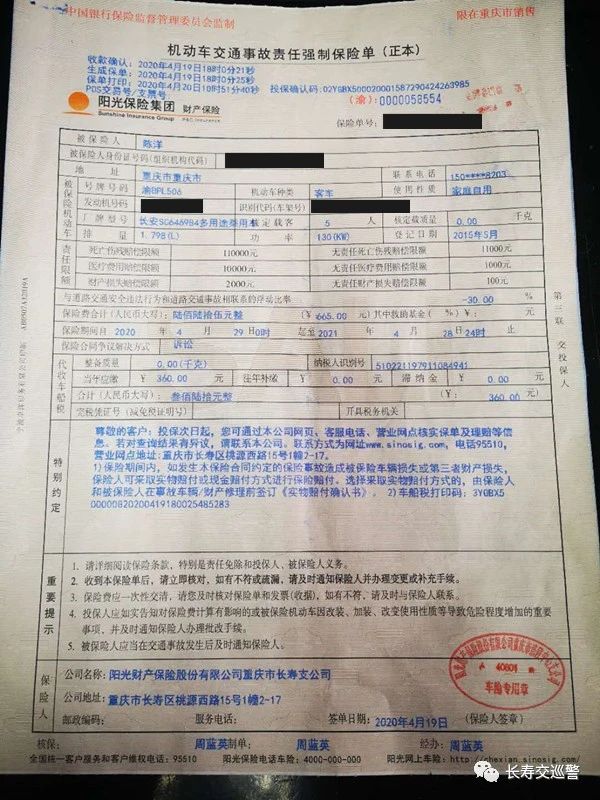 中国银行保险监督管理委员会监制
限在重庆市销售
机动车交通事故责任强制保险单（正本）
收款确认：2020年4月19日18时0分21秒
生成保单：2020年4月19日18时0分25秒
保单打印：2020年4月20日10时51分40秒 投保确认码：02YGBX500020001587290424263985
POS交易号/支票号：
（渝）：0000058554
阳光保险集团 财产保险
Sunshine Insurance Group P&C INSURANCE
保险单号：
被保险人 陈洋
被保险人身份证号码(组织机构代码)
地址 重庆市重庆市 联系电话 150****8203
被保险机动车
号牌号码 渝BPL506 机动车种类 客车 使用性质 家庭自用
发动机号 识别代码(车架号)
厂牌型号 长安SC6469B4多用途乘用车 核定载客 5 人 核定载质量 0.00 千克
排量 1.798(L) 功率 130(KW) 登记日期 2015年5月
责任限额
死亡伤残赔偿限额 110000元 无责任死亡伤残赔偿限额 11000元
医疗费用赔偿限额 10000元 无责任医疗费用赔偿限额 1000元
财产损失赔偿限额 2000元 无责任财产损失赔偿限额 100元
与道路交通安全违法行为和道路交通事故相联系的浮动比率 -30.00 %
保险费合计(人民币大写)：陆佰陆拾伍元整 (￥ 665.00 元)其中救助基金(%)￥ 元
保险期间自 2020 年 4 月 29 日0时 起至2021 年 4 月 28 日24时 止
保险合同争议解决方式 诉讼
代收车船税
整备质量 0.00(千克) 纳税人识别号 510221197911084941
当年应缴 ￥ 360.00 元 往年补缴 ￥ 0.00 元 滞纳金 ￥ 0.00 元
合计(人民币大写)：叁佰陆拾元整 (￥ 360.00 元)
完税凭证号(减免税证明号) 开具税务机关
特别约定
尊敬的客户：投保次日起，您可通过本公司网页、客服电话、营业网点核实保单及理赔等信
息。若对查询结果有异议，请联系本公司。联系方式为网址www.sinosig.com，电话95510，
营业网点地址:重庆市长寿区桃源西路15号1幢2-17。
1)保险期间内，如发生本保险合同约定的保险事故造成被保险车辆损失或第三者财产损失，
保险人可采取实物赔付或现金赔付方式进行保险赔付。选择采取实物赔付方式的，由保险人
和被保险人在事故车辆/财产修理前签订《实物赔付确认书》。2)车船税打印码：3YGBX5
00000820200419180025485283
重要提示
1. 请详细阅读保险条款，特别是责任免除和投保人、被保险人义务。
2. 收到本保险单后，请立即核对，如有不符或疏漏，请及时通知保险人并办理变更或补充手续。
3. 保险费应一次性交清，请您及时核对保险单和发票(收据)，如有不符，请及时与保险人联系。
4. 投保人应如实告知对保险费计算有影响的或被保险机动车因改装、加装、改变使用性质等导致危险程度增加的重要
事项，并及时通知保险人办理批改手续。
5. 被保险人应当在交通事故发生后及时通知保险人。
保险人
公司名称：阳光财产保险股份有限公司重庆市长寿支公司
公司地址：重庆市长寿区桃源西路15号1幢2-17
邮政编码： 服务电话： 签单日期：2020年4月19日 (保险人签章)
车险专用章
核保： 周蓝英 制单： 周蓝英 经办： 周蓝英
全国统一客户服务和客户维权电话：95510 阳光保险电话车险：4000-000-000 阳光网上车险：http://chexian.sinosig.com
第三联 交投保人
长寿交巡警